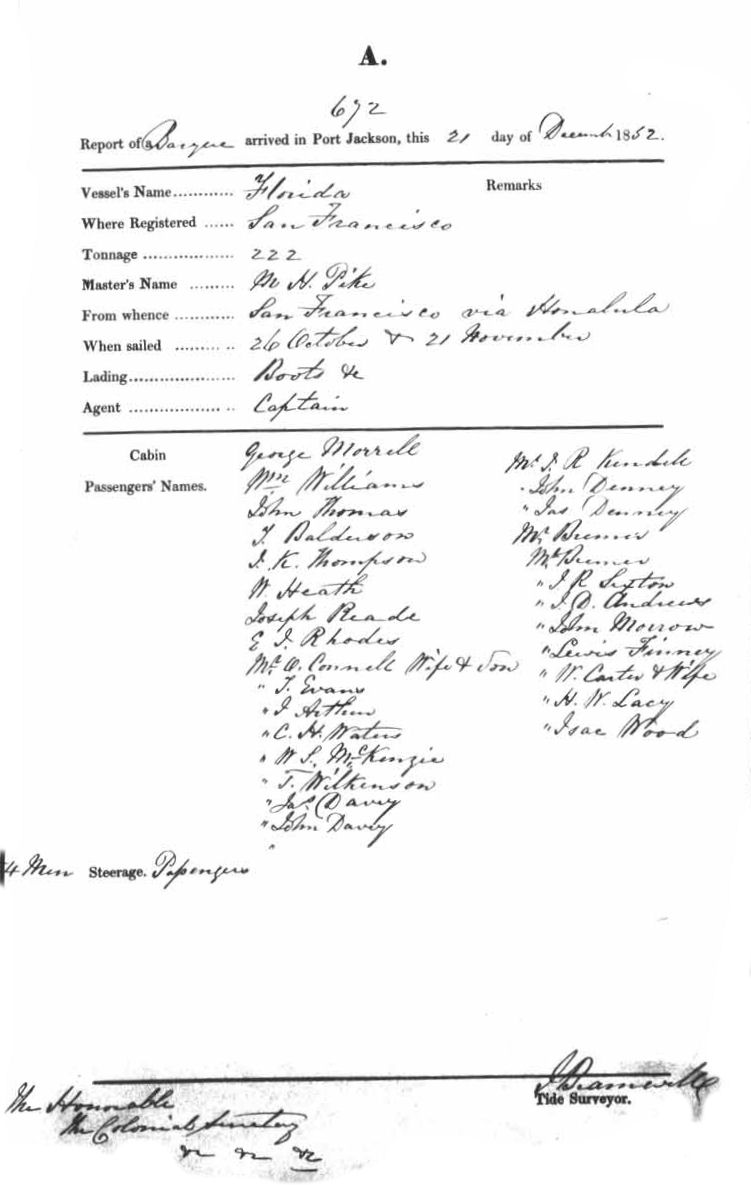 A.
672
Report of a Barque arrived in Port Jackson, this 21 day of Decemb 1852.
Vessel's Name ............ Florida
Remarks
Where Registered ...... San Francisco
Tonnage .................. 222
Master's Name ......... M H. Pike
From whence ............ San Francisco via Honalula
When sailed ............ 26 October & 21 November
Lading ..................... Boots &c
Agent ..................... Captain
Cabin
Passengers' Names.
George Morrell
Wm Williams
John Thomas
T. Balderson
J. K. Thompson
W. Heath
Joseph Reade
E J. Rhodes
Mr O. Connell Wife & Son
" T. Evans
" J Arthur
" C. H. Waters
" W S. McKenzie
" T. Wilkenson
" Jas. Davey
" John Davey
"
Mr J. R Kendell
" John Denney
" Jas Denney
Mrs Bremer
Mr Bremer
" J R Sexton
" J. D. Andrews
" John Morrow
" Lewis Finney
" W. Carter & Wife
" H. W. Lacy
" Isac Wood
4 Men Steerage. Passengers
Tide Surveyor.
The Honorable
The Colonial Secretary
&c &c &c